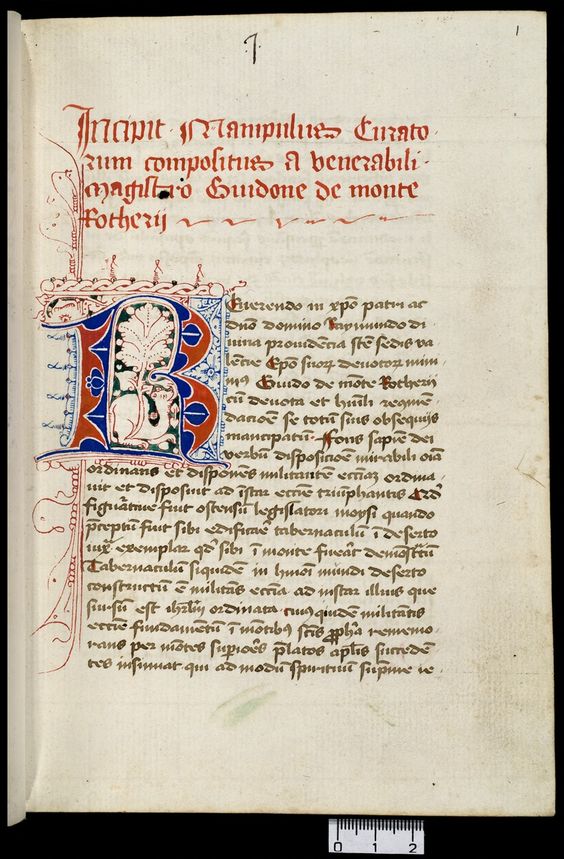 1
J
Incipit Manipulus Curato
rum compositus a venerabili
Magistro Guidone de monte
Rotherii
Reuerendo in xp̄o patri ac
dn̄o domino Raymundo di
uina prouidētia sc̄te sedis va
lētie Ep̄o suoꝝ deuotoꝝ mini
mꝰ Guido de mōte Rotherij
cū deuota et hūili recōmen
dacioē se totū suis obsequijs
mancipatū Fons sapiē dei
verbū dispositioē mirabili oīa
ordinatis et disponēs militantē eccīaz ordina
uit et disposuit ad īstar eccīe triūphantis
figuratiue fuit ostensū legislatori moysi quando
p̄ceptū fuit sibi edificare tabernaculū ī deserto
iuxᵃ exemplar qd̓ sibi ī monte fuerat demōstratū
Tabernaculū siquidem in huiꝰ mūdi deserto
constructū ē militās eccīa ad instar illius que
sursū est ihrlm̄ ordinata cuiꝰ quidē militātis
eccīe fundamētū ī mōtibꝰ sc̄tis ꝓph̄a rememo
rans per mōtes supiores p̄latos ap̄lis succedē
tes insinuat qui ad modū spirituū supīne re
0 1 2